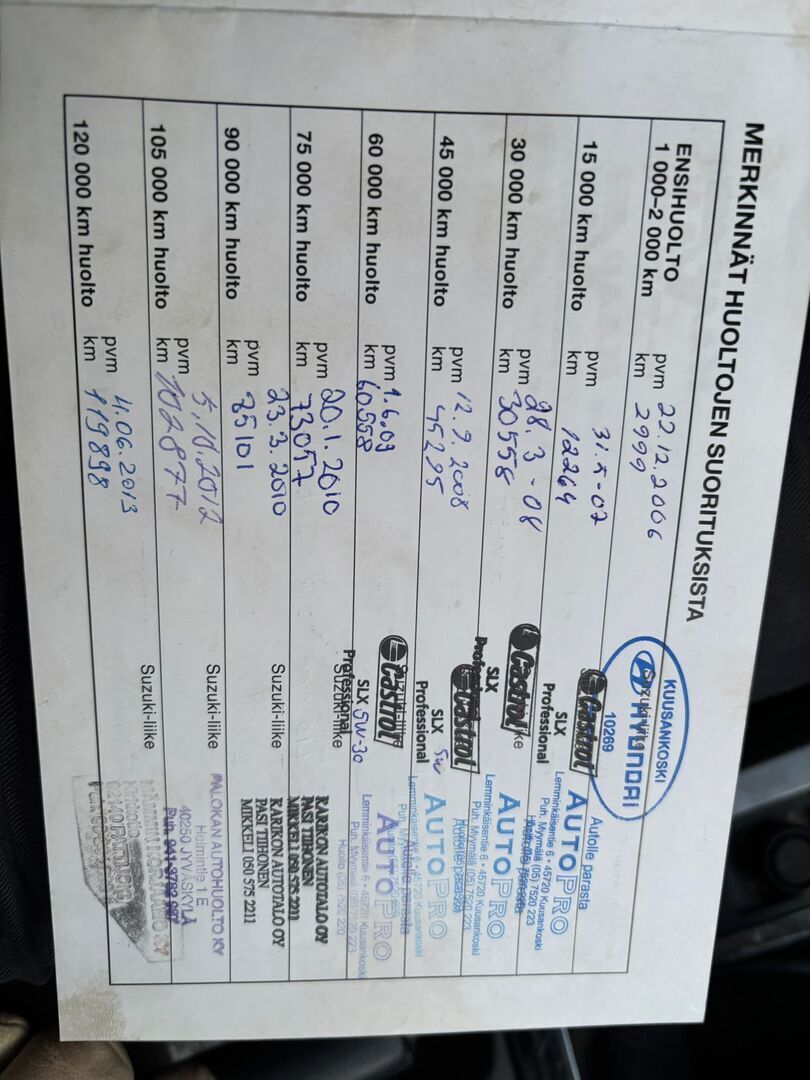 MERKINNÄT HUOLTOJEN SUORITUKSISTA
ENSIHUOLTO
1 000–2 000 km
pvm 22.12.2006
km 2999
KUUSANKOSKI
HYUNDAI
10269
15 000 km huolto
pvm 31.5-07
km 12264
Castrol
SLX
Professional
Autolle parasta
AUTOPRO
Lemminkäisentie 6 • 45720 Kuusankoski
Puh. Myymälä (05) 7520 223
30 000 km huolto
pvm 28.3-08
km 30558
Castrol
SLX
Professional
AUTOPRO
Lemminkäisentie 6 • 45720 Kuusankoski
Puh. Myymälä (05) 7520 223
45 000 km huolto
pvm 12.9.2008
km 45295
Castrol
SLX
Professional
5w
AUTOPRO
Lemminkäisentie 6 • 45720 Kuusankoski
60 000 km huolto
pvm 1.6.09
km 60558
Castrol
SLX 5W-30
Professional
AUTOPRO
Lemminkäisentie 6 • 45720 Kuusankoski
Puh. Myymälä (05) 7520 223
Huolto (05) 7520 220
75 000 km huolto
pvm 20.1.2010
km 73057
Suzuki-liike
KARIKON AUTOTALO OY
PASI TIIHONEN
MIKKELI 050 575 2211
90 000 km huolto
pvm 23.3.2010
km 85101
Suzuki-liike
KARIKON AUTOTALO OY
PASI TIIHONEN
MIKKELI 050 575 2211
105 000 km huolto
pvm 5.10.2012
km 102877
Suzuki-liike
PALOKAN AUTOHUOLTO KY
40250 JYVÄSKYLÄ
120 000 km huolto
pvm 4.06.2013
km 119898
Suzuki-liike